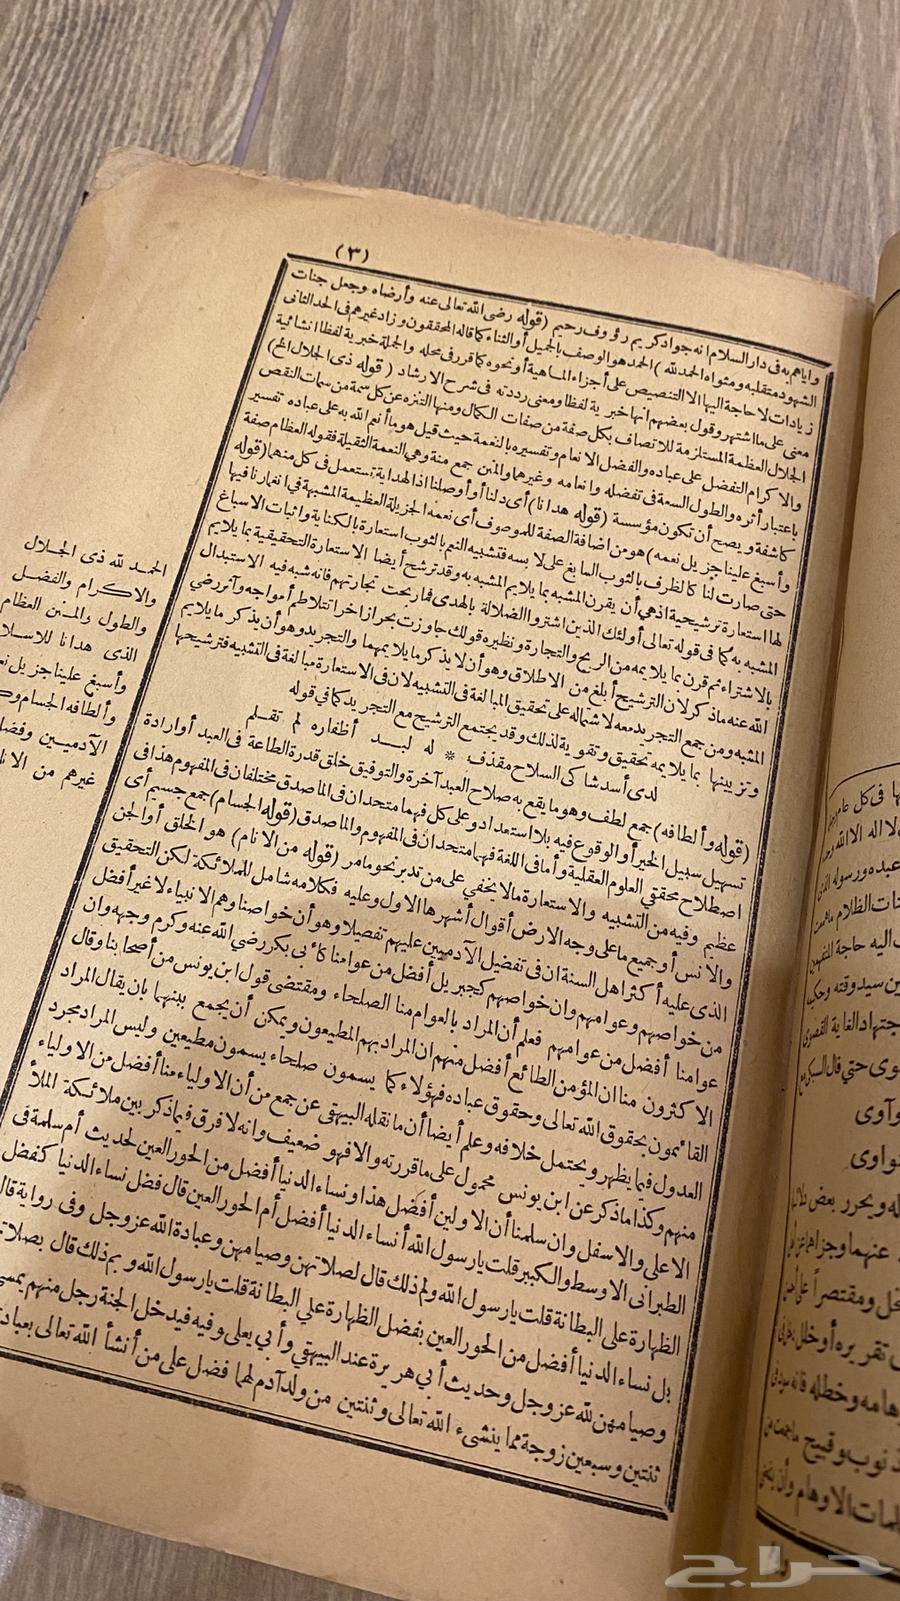 (٣)
واياهم به فى دار السلام انه جواد كريم رؤوف رحيم (قوله رضى الله تعالى عنه وأرضاه وجعل جنات
الشهود متقلبه ومثواه الحمد لله) الحمد هو الوصف بالجميل أو الثناء كما قاله المحققون وزاد غيرهم فى الحد الثانى
زيادات لا حاجة اليها الا التنصيص على أجزاء الماهية أو نحوه كما قرر فى محله والجملة خبرية لفظا انشائية
معنى على ما اشتهر وقول بعضهم انها خبرية لفظا ومعنى رددته فى شرح الارشاد (قوله ذى الجلال الخ)
الجلال العظمة المستلزمة للاتصاف بكل صفة من صفات الكمال ومنها التنزه عن كل سمة من سمات النقص
والاكرام التفضل على عباده والفضل الانعام وتفسيره بالنعمة حيث قيل هو ما أنعم الله به على عباده تفسير
باعتبار أثره والطول السعة فى تفضله وانعامه وغيرهما والمنن جمع منة وهى النعمة الثقيلة فقوله العظام صفة
كاشفة ويصح أن تكون مؤسسة (قوله هدانا) أى دلنا أو أوصلنا اذ الهداية تستعمل فى كل منهما (قوله
وأسبغ علينا جزيل نعمه) هو من اضافة الصفة للموصوف أى نعمه الجزيلة العظيمة المشبهة فى انغمارنا فيها
حتى صارت لنا كالظرف بالثوب السابغ على لابسه فتشبيه النعم بالثوب استعارة بالكناية واثبات الاسباغ
لها استعارة ترشيحية اذ هى أن يقرن المشبه بما يلايم المشبه به وقد ترشح أيضا الاستعارة التحقيقية بما يلايم
المشبه به كما فى قوله تعالى أولئك الذين اشتروا الضلالة بالهدى فما ربحت تجارتهم فانه شبه فيه الاستبدال
بالاشتراء ثم قرن بما يلايمه من الربح والتجارة ونظيره قولك جاوزت بحرا زاخرا تتلاطم أمواجه وآثر رضى
الله عنه ما ذكر لان الترشيح أبلغ من الاطلاق وهو أن لا يذكر ما يلايمهما والتجريد وهو أن يذكر ما يلايم
المشبه ومن جمع التجريد معه لاشتماله على تحقيق المبالغة فى التشبيه لان فى الاستعارة مبالغة فى التشبيه فترشيحها
وتزيينها بما يلايمه تحقيق وتقوية لذلك وقد يجتمع الترشيح مع التجريد كما فى قوله
لدى أسد شاكى السلاح مقذف * له لبد أظفاره لم تقلم
(قوله وألطافه) جمع لطف وهو ما يقع به صلاح العبد آخرة والتوفيق خلق قدرة الطاعة فى العبد أو ارادة
تسهيل سبيل الخير أو الوقوع فيه بلا استعداد وعلى كل فهما متحدان فى الماصدق مختلفان فى المفهوم هذا فى
اصطلاح محققى العلوم العقلية وأما فى اللغة فهما متحدان فى المفهوم والماصدق (قوله الجسام) جمع جسيم أى
عظيم وفيه من التشبيه والاستعارة ما لا يخفى على من تدبر نحو ما مر (قوله من الانام) هو الخلق أو الجن
والانس أو جميع ما على وجه الارض أقوال أشهرها الاول وعليه فكلامه شامل للملائكة لكن التحقيق
الذى عليه أكثر أهل السنة ان فى تفضيل الآدميين عليهم تفصيلا وهو أن خواصنا وهم الانبياء لا غير أفضل
من خواصهم وعوامهم وان خواصهم كجبريل أفضل من عوامنا كأبى بكر رضى الله عنه وكرم وجهه وان
عوامنا أفضل من عوامهم فعلم أن المراد بالعوام منا الصلحاء ومقتضى قول ابن يونس من أصحابنا وقال
الاكثرون منا ان المؤمن الطائع أفضل منهم ان المراد بهم المطيعون ويمكن أن يجمع بينهما بان يقال المراد
القائمون بحقوق الله تعالى وحقوق عباده فهؤلاء كما يسمون صلحاء يسمون مطيعين وليس المراد مجرد
العدول فيما يظهر ويحتمل خلافه وعلم أيضا أن ما نقله البيهقى عن جمع من أن الاولياء منا أفضل من الاولياء
منهم وكذا ما ذكر عن ابن يونس محمول على ما قررته والا فهو ضعيف وانه لا فرق فيما ذكر بين ملائكة الملأ
الاعلى والاسفل وان سلمنا أن الاولين أفضل هذا ونساء الدنيا أفضل من الحور العين لحديث أم سلمة فى
الطبرانى الاوسط والكبير قلت يا رسول الله أنساء الدنيا أفضل أم الحور العين قال فضل نساء الدنيا كفضل
الظهارة على البطانة قلت يا رسول الله ولم ذلك قال لصلاتهن وصيامهن وعبادة الله عز وجل وفى رواية قال
بل نساء الدنيا أفضل من الحور العين بفضل الظهارة على البطانة قلت يا رسول الله وبم ذلك قال بصلاتهن
وصيامهن لله عز وجل وحديث أبى هريرة عند البيهقى وأبى يعلى وفيه فيدخل الجنة رجل منهم
ثنتين وسبعين زوجة مما ينشىء الله تعالى وثنتين من ولد آدم لهما فضل على من أنشأ الله تعالى
الحمد لله ذى الجلال
والاكرام والفضل
والطول والمنن العظام
الذى هدانا
وأسبغ علينا جزيل
وألطافه الجسام
الآدميين
غيرهم من
فى كل عام
لا اله الا الله
عبده ورسوله
الظلام
اليه حاجة
سيد وقته
الغاية القصوى
حتى قال السبكى
وآوى
ويحرر بعض
عنهما وجزاهما
ومقتصرا على
تقريره أو خلل
وخطله
ذنوب وقبيح
الاوهام وأن
حراج